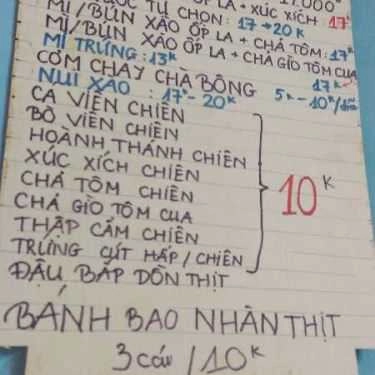 17.000
TỰ CHỌN: 17 → 20K
MÌ/BÚN XÀO ỐP LA + XÚC XÍCH 17K
MÌ/BÚN XÀO ỐP LA + CHẢ TÔM: 17K
MÌ TRỨNG: 13K XÀO ỐP LA + CHẢ GIÒ TÔM CUA 17K
CƠM CHAY CHÀ BÔNG 5K - 10K
NUI XÀO : 17K - 20K
CÁ VIÊN CHIÊN
BÒ VIÊN CHIÊN
HOÀNH THÁNH CHIÊN
XÚC XÍCH CHIÊN
CHẢ TÔM CHIÊN
CHẢ GIÒ TÔM CUA
THẬP CẨM CHIÊN
TRỨNG CÚT HẤP / CHIÊN
10K
ĐẬU BẮP DỒN THỊT
BÁNH BAO NHÂN THỊT
3 cái / 10K